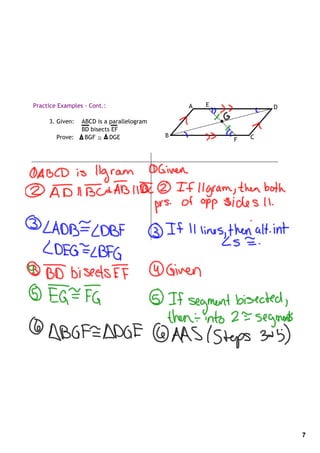 Practice Examples - Cont.:
3. Given: ABCD is a parallelogram
BD bisects EF
Prove: ▲BGF ≅ ▲DGE
A E D
G
B F C
① ABCD is ||gram ① Given
② AD || BC & AB || DC ② If ||gram, then both
prs. of opp sides ||.
③ ∠ADB ≅ ∠DBF ③ If || lines, then alt. int
∠DEG ≅ ∠BFG ∠s ≅.
④ BD bisects EF ④ Given
⑤ EG ≅ FG ⑤ If segment bisected,
then ÷ into 2 ≅ segments
⑥ △BGF ≅ △DGE ⑥ AAS (Steps 3 → 5)
7